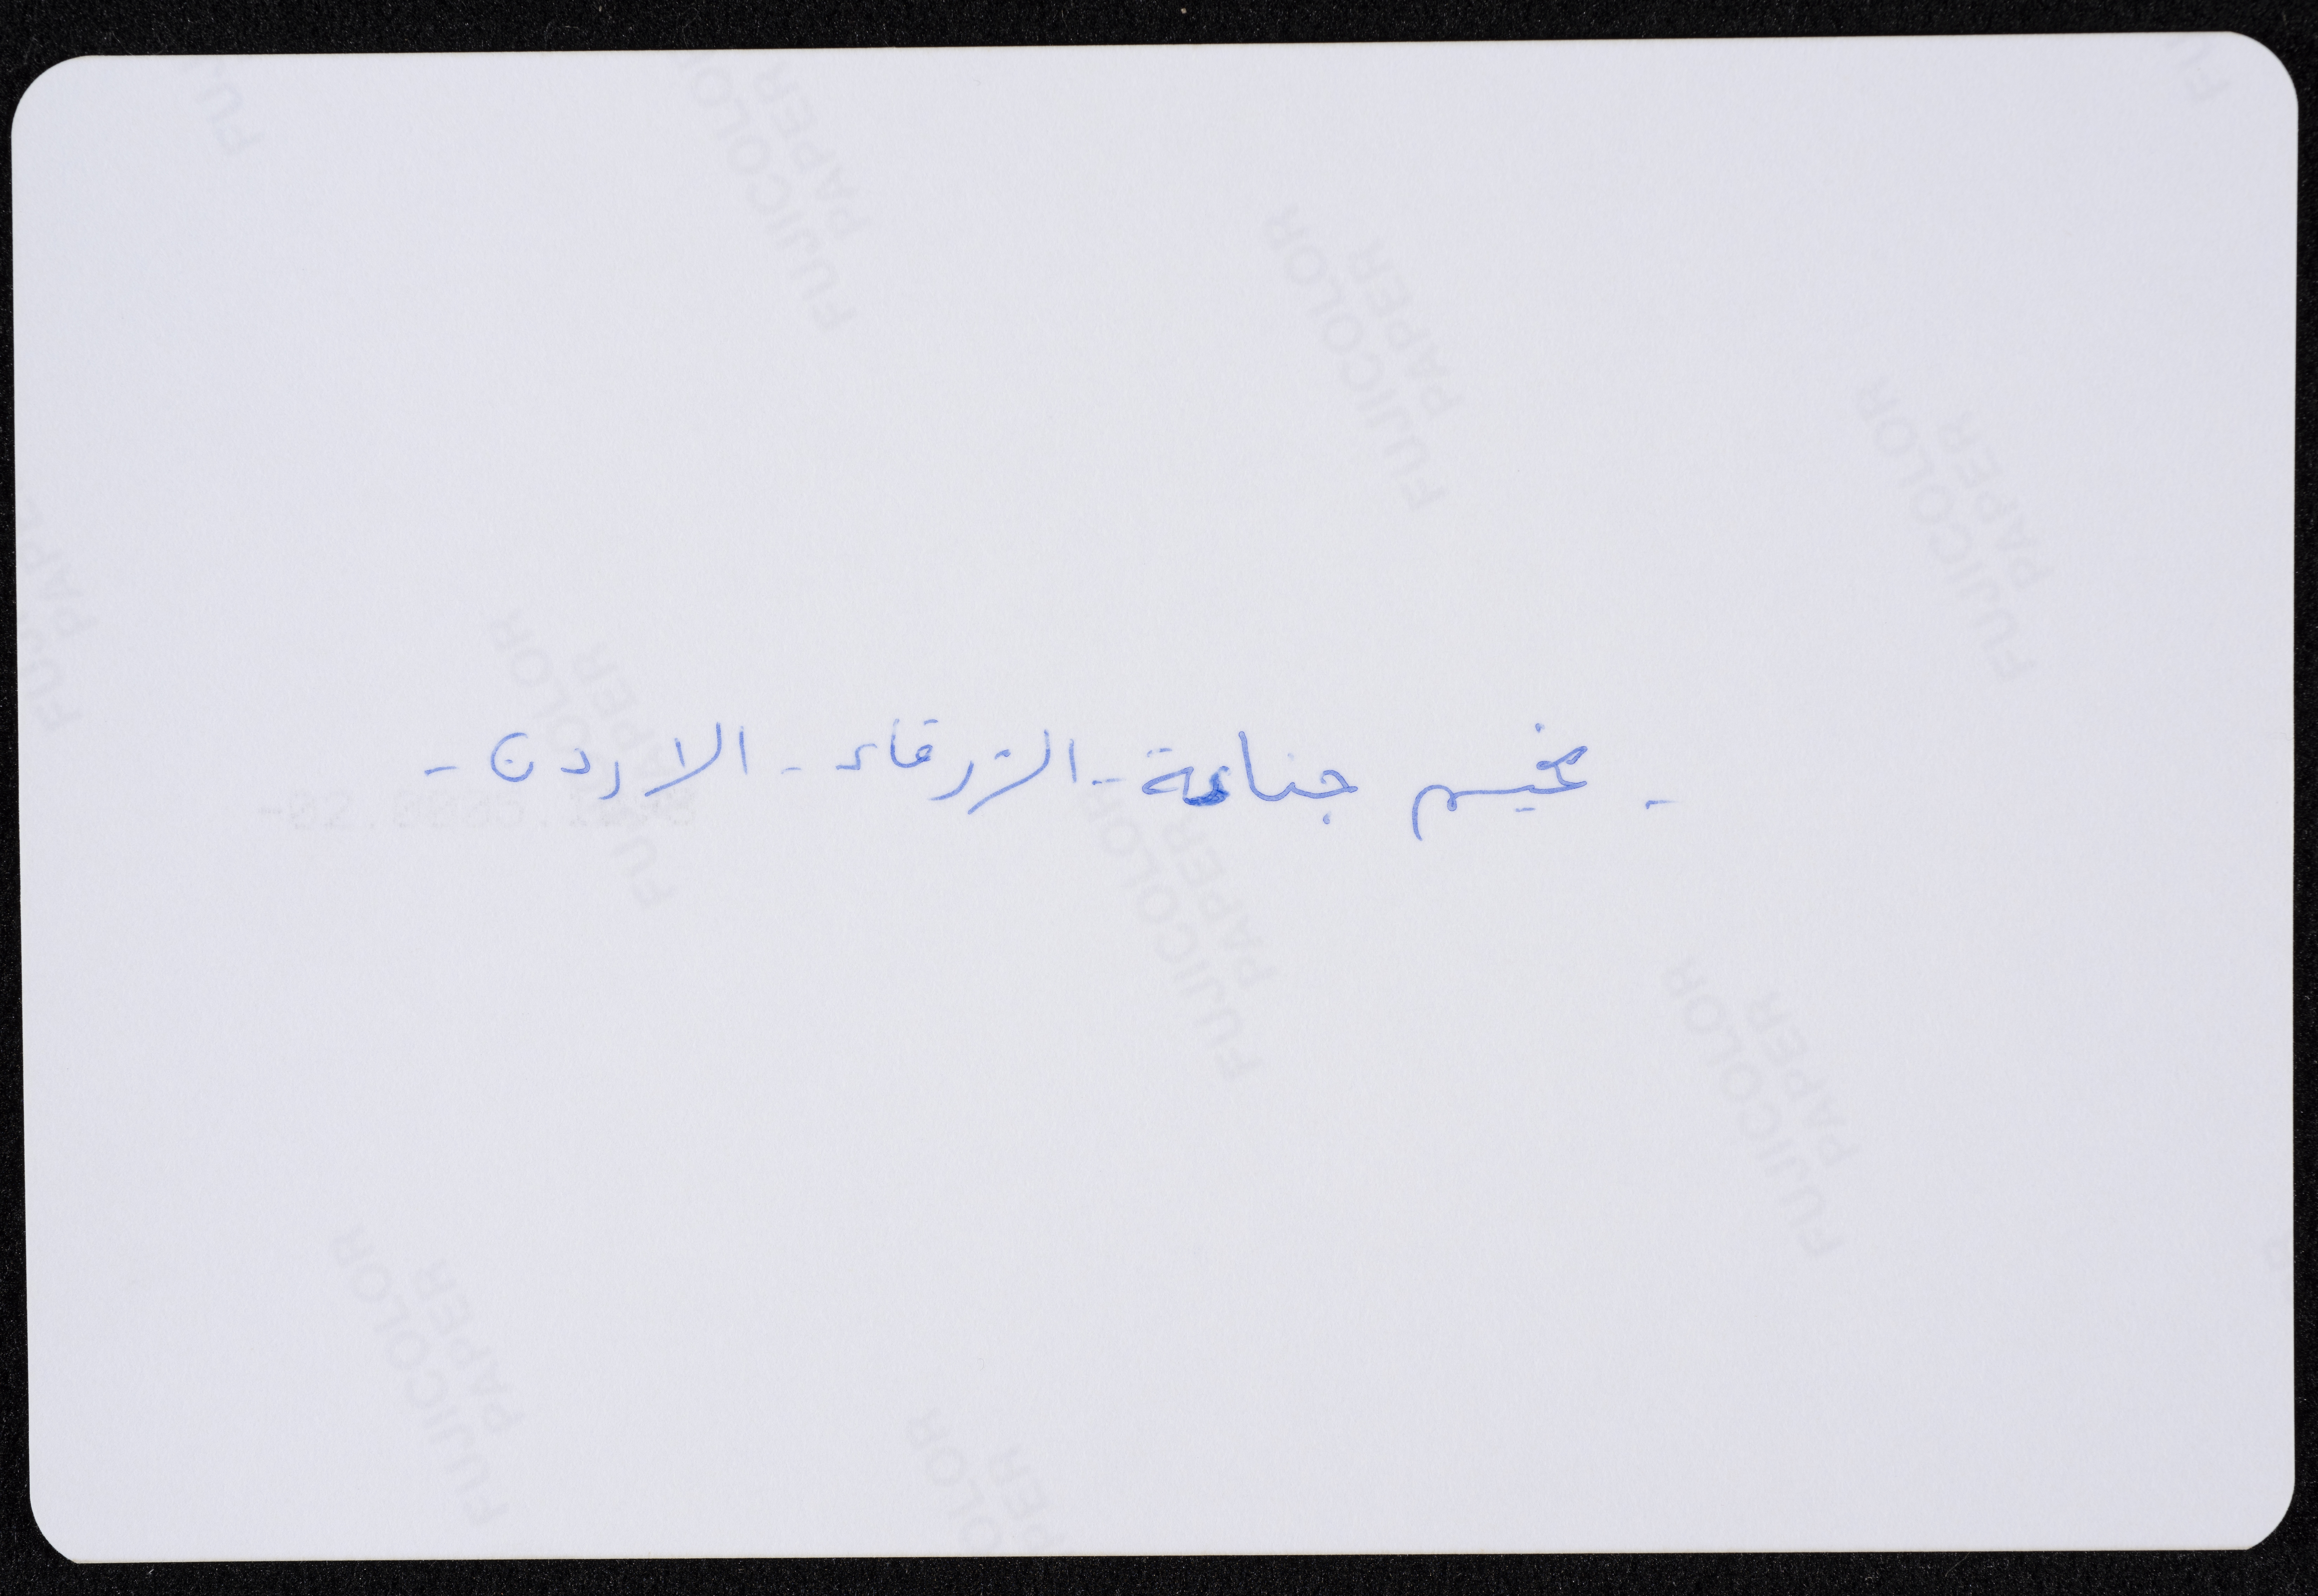 - مخيم جناعة - الزرقاء - الاردن -
FUJICOLOR PAPER
FUJICOLOR PAPER
FUJICOLOR PAPER
FUJICOLOR PAPER
FUJICOLOR PAPER
FUJICOLOR PAPER
FUJICOLOR PAPER